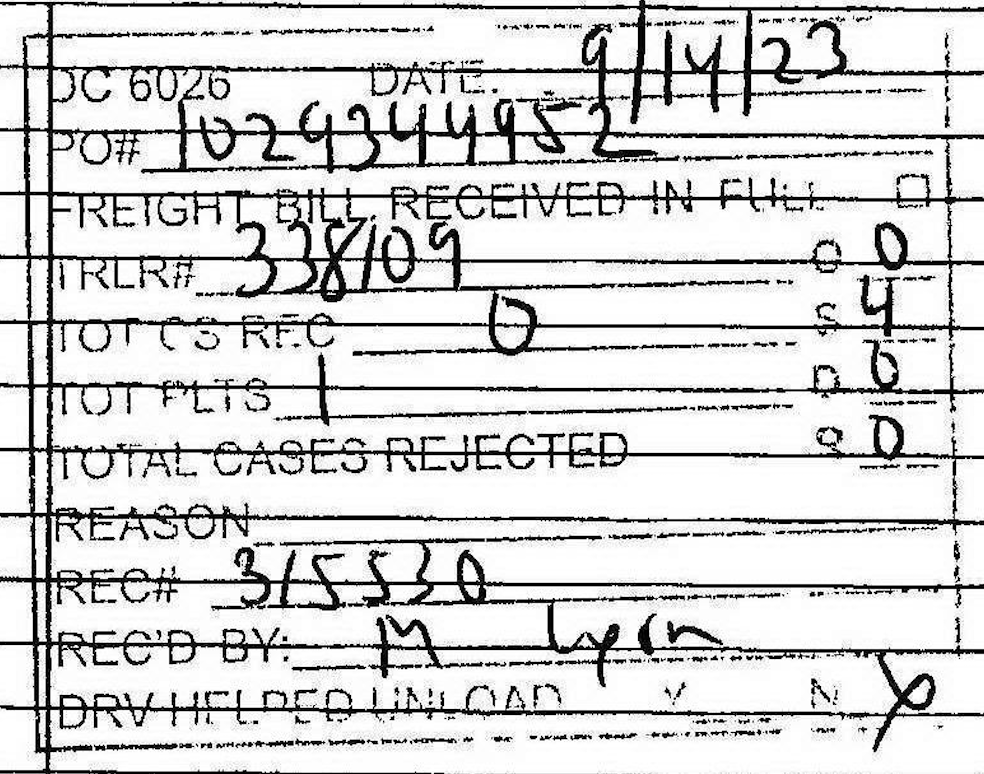 DC 6026 DATE: 9/14/23
PO# 10293449952
FREIGHT BILL RECEIVED IN FULL ☐
TRLR# 338109 O 0
TOT CS REC 0 S 4
TOT PLTS 1 D 0
TOTAL CASES REJECTED 0
REASON
REC# 315530
REC'D BY: M
DRV HELPED UNLOAD Y N X